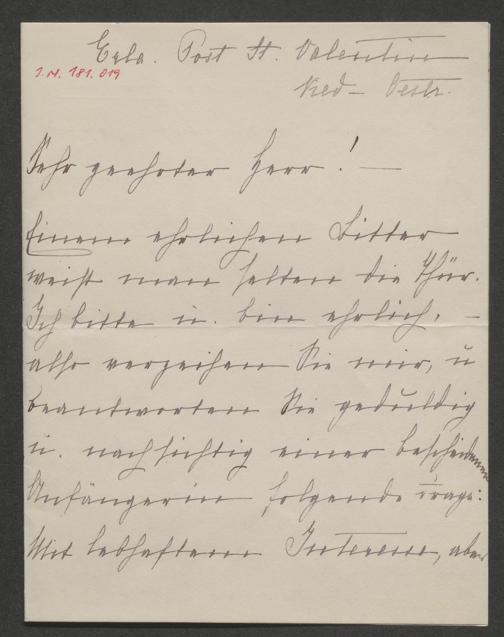 Erla. Post St. Valentin
I.N. 181.019
Nied- Oestr.
Sehr geehrter Herr! —
Einem ehrlichen Bitter
weist man selten die Thür.
Ich bitte u. bin ehrlich, —
also verzeihen Sie mir, u
beantworten Sie geduldig
u. nachsichtig einer bescheidenen
Anfängerin folgende Frage:
Mit lebhaftem Interesse, aber